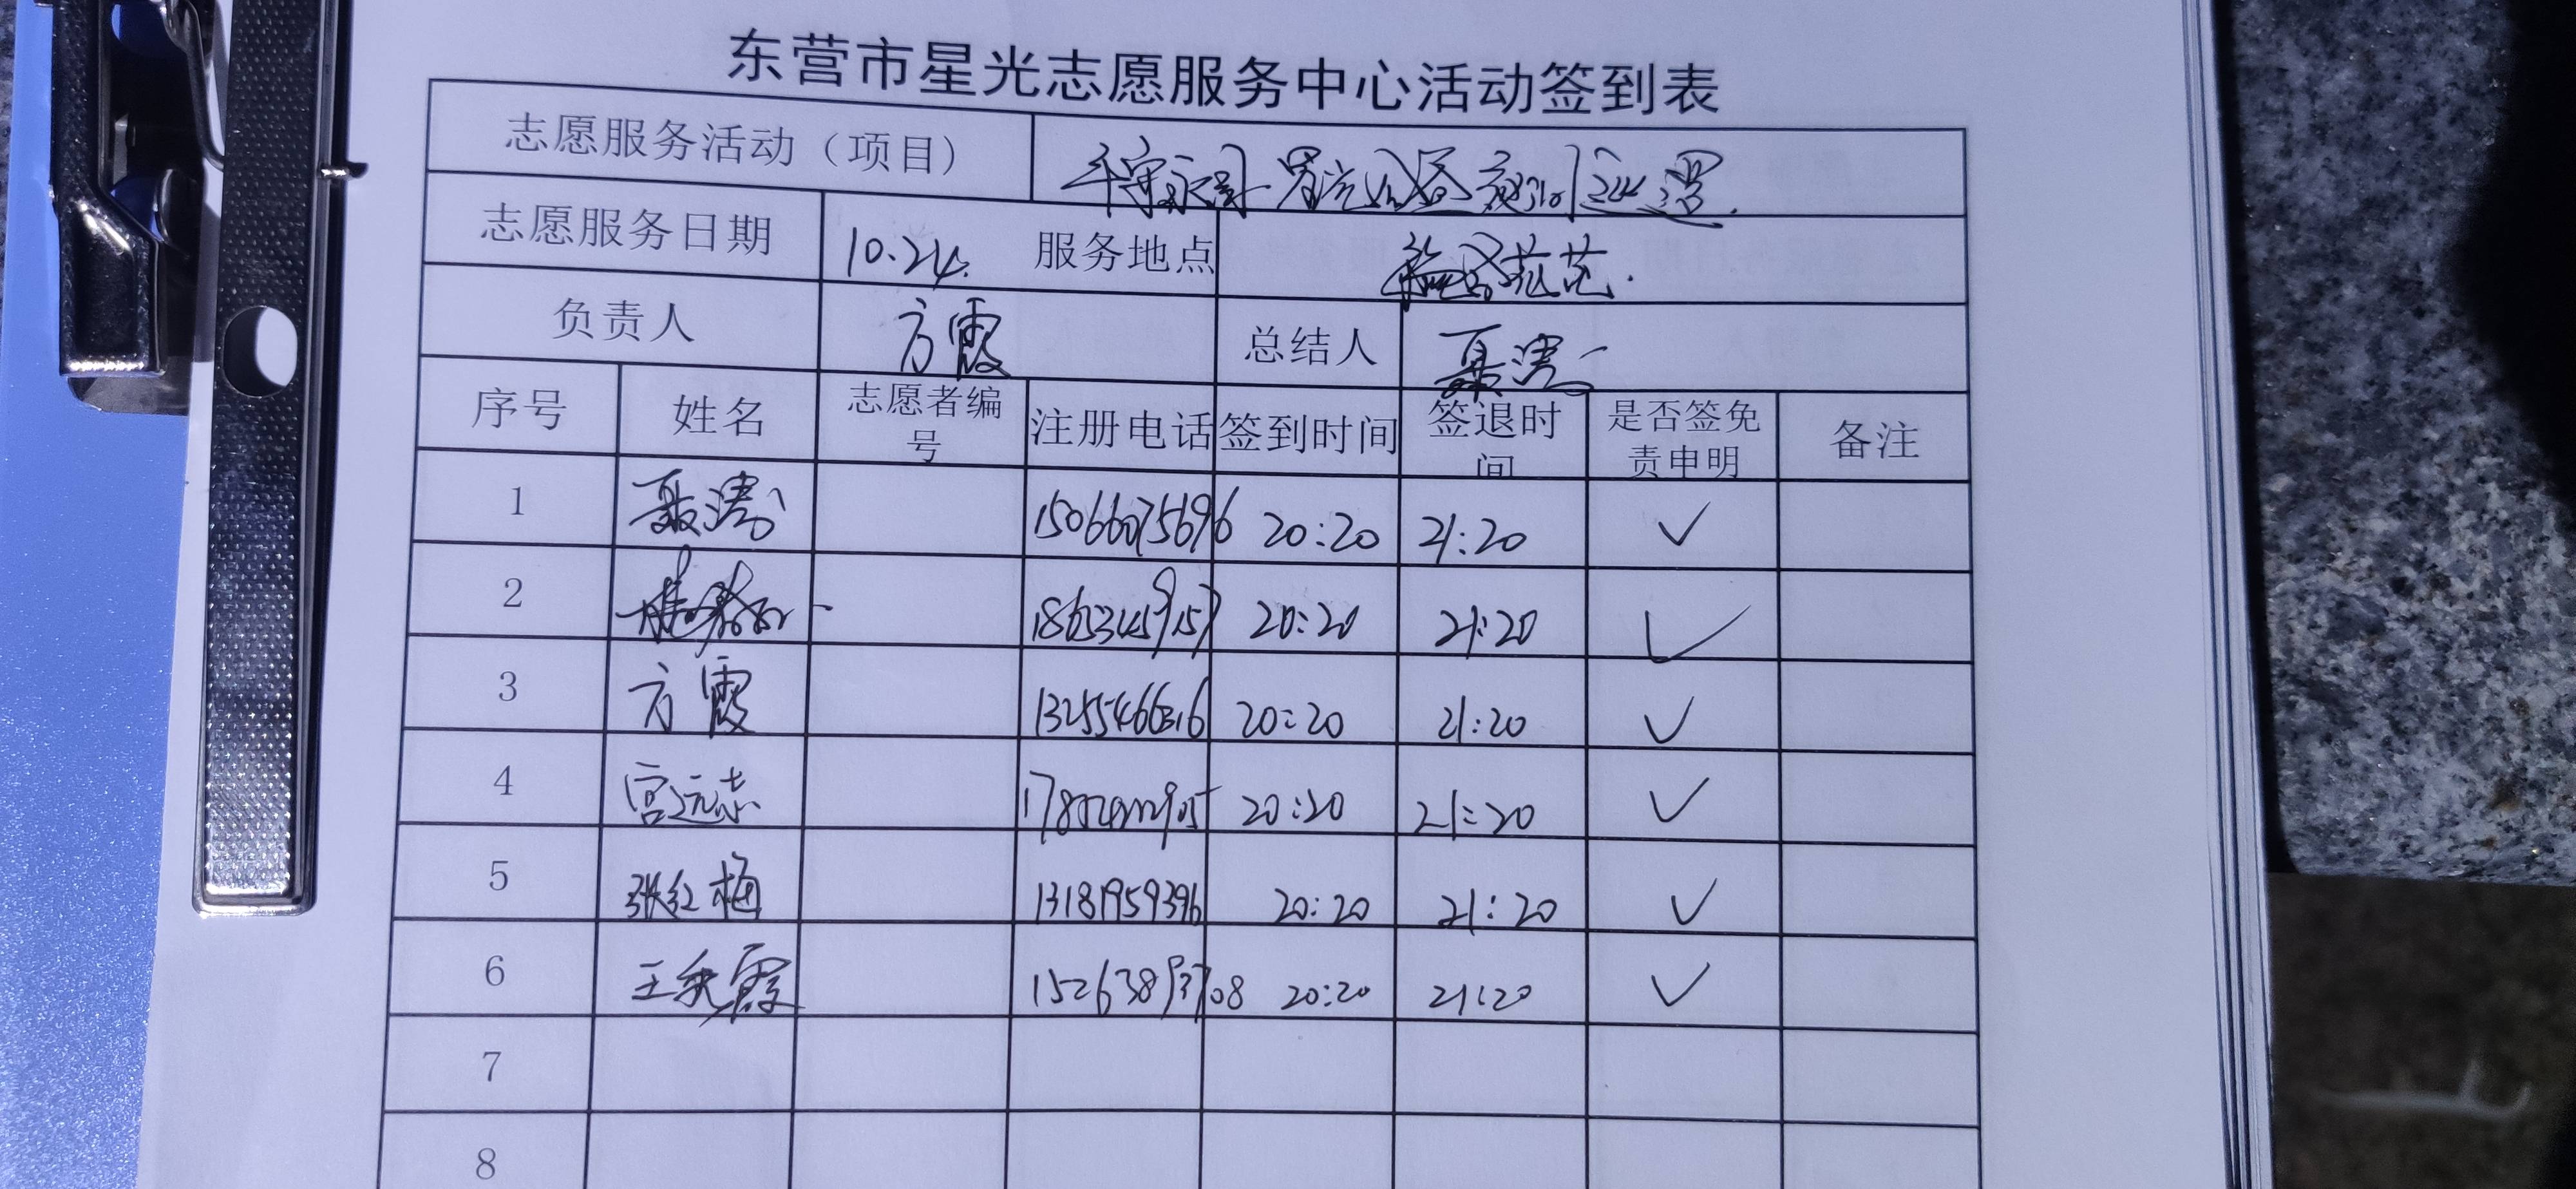 东营市星光志愿服务中心活动签到表
志愿服务活动（项目）
志愿服务日期 10.24. 服务地点
负责人 方霞 总结人
序号 姓名 志愿者编号 注册电话 签到时间 签退时间 是否签免责申明 备注
1 15066075696 20:20 21:20 ✓
2 20:20 21:20 ✓
3 方霞 13255466316 20:20 21:20 ✓
4 宫远志 20:20 21:20 ✓
5 张红梅 13181959396 20:20 21:20 ✓
6 王秀霞 20:20 21:20 ✓
7
8